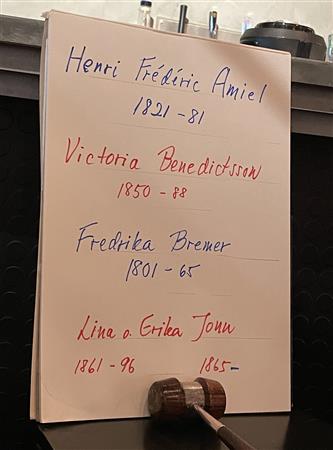 Henri Frédéric Amiel
1821-81
Victoria Benedictsson
1850-88
Fredrika Bremer
1801-65
Lina o. Erika Jonn
1861-96 1865-